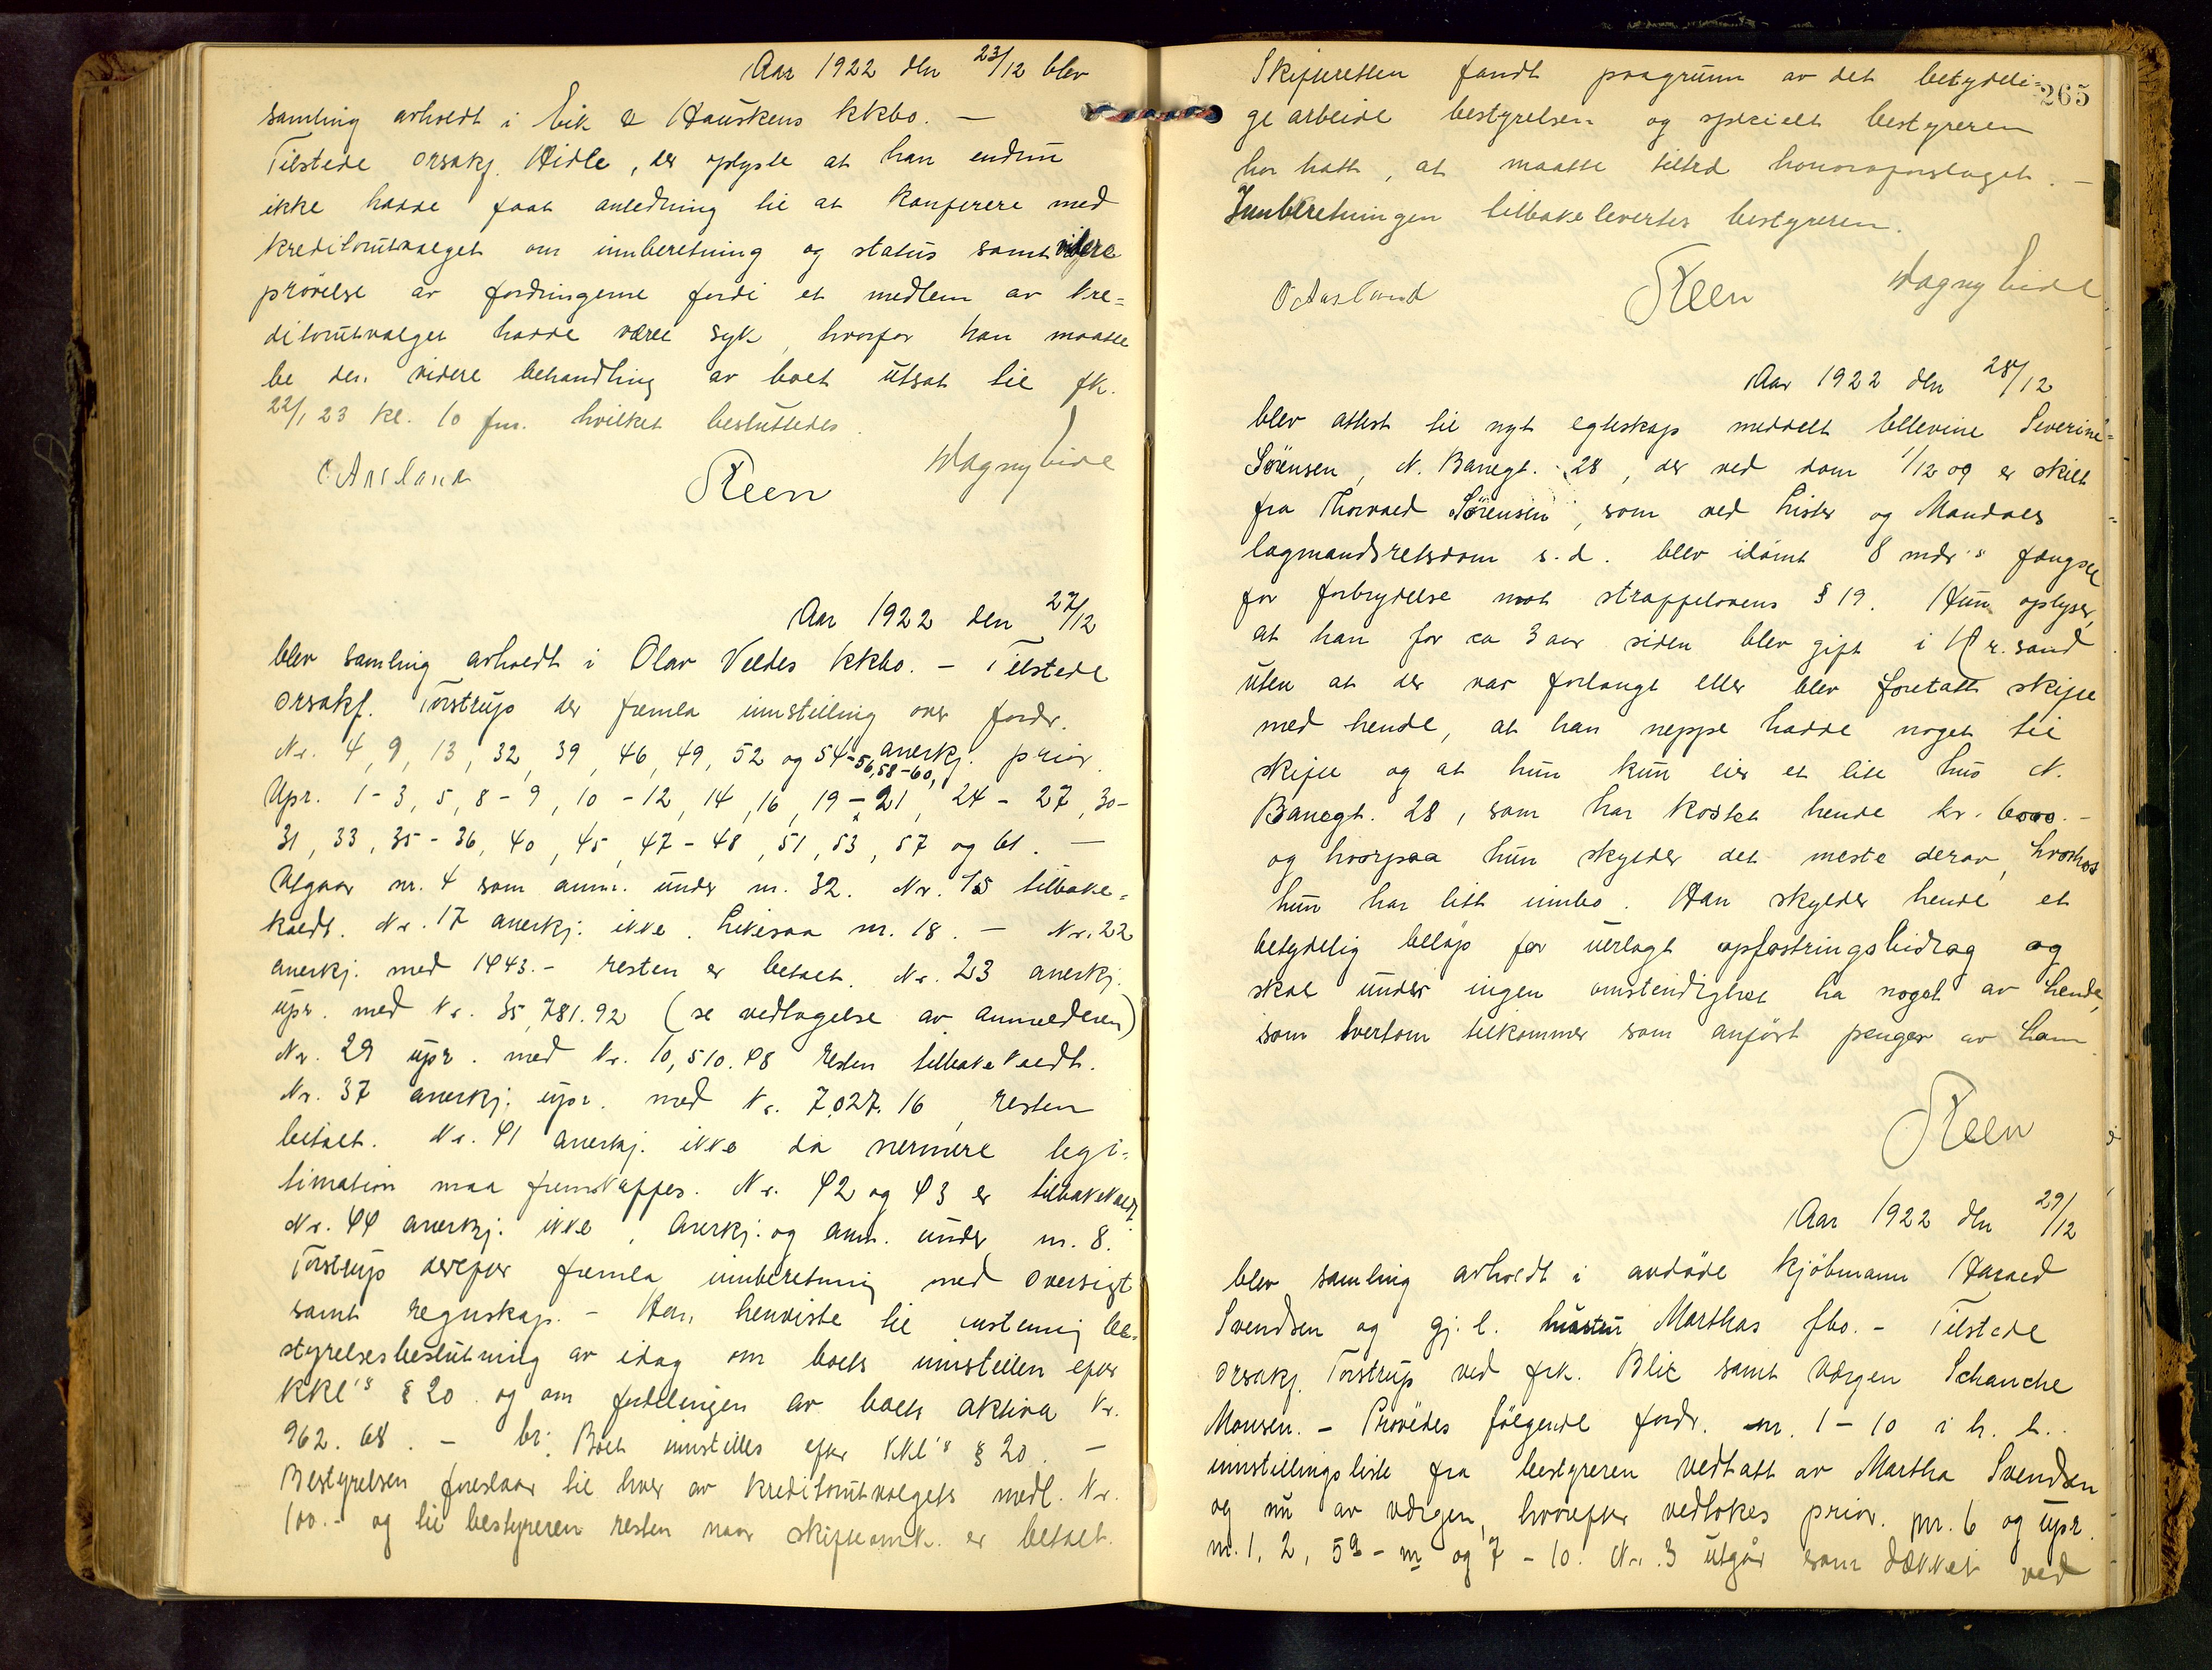 Aar 1922 den 23/12 blev
samling avholdt i Eik & Hauskens kkbo. —
Tilstede orsakf. Hidle, der oplyste at han endnu
ikke hadde faat anledning til at konferere med
kreditorutvalget om innberetning og status samt videre
prøvelse av fordringerne fordi et medlem av kre=
ditorutvalget hadde været syk, hvorfor han maatte
be den videre behandling av boet utsat til fk.
22/1 23 kl. 10 fm. hvilket besluttedes.
O Aasland Steen Magny Eide
Aar 1922 den 27/12
blev samling avholdt i Olav Veldes kkbo. – Tilstede
orsakf. Torstrup der fremla innstilling over fordr.
Nr. 4, 9, 13, 32, 39, 46, 49, 52 og 54 anerkj. prior.
-56, 58-60,
Upr. 1-3, 5, 8-9, 10-12, 14, 16, 19-21, 24-27, 30-
31, 33, 35-36, 40, 45, 47-48, 51, 53, 57 og 61. —
Utgaar nr. 4 som anm. under nr. 32. Nr. 15 tilbake=
kaldt. Nr. 17 anerkj. ikke. Likesaa nr. 18. — Nr. 22
anerkj. med 1443.- resten er betalt. Nr. 23 anerkj.
upr. med kr. 35,781.92 (se vedtagelse av anmelderen)
Nr. 29 upr. med kr. 10,510.48 resten tilbakekaldt.
Nr. 37 anerkj. upr. med kr. 7,027.16, resten
betalt. Nr. 41 anerkj. ikke da nermere legi=
timation maa fremskaffes. Nr. 42 og 43 er tilbakekaldt.
Nr. 44 anerkj. ikke, Anerkj. og anm. under nr. 8.
Torstrup derefter fremla innberetning med oversigt
samt regnskap. – Han henviste til enstemig be=
styrelsesbeslutning av idag om boets innstillen efter
KKL's § 20 og om fordelingen av boets aktiva kr.
962.68. – br: Boet innstilles efter KKL's § 20. —
Bestyrelsen foreslaar til hver av kreditorutvalgets medl. kr.
100.- og til bestyreren resten naar skifteomk. er betalt.
265
Skifteretten fandt paagrunn av det betydeli=
ge arbeide bestyrelsen og specielt bestyreren
har hatt, at maatte tiltræ honorarforslaget. —
Innberetningen tilbakeleverter bestyreren.
O Aasland Steen Magny Eide
Aar 1922 den 28/12
blev attest til nyt egteskap meddelt Ellevine Severine
Sørensen, N. Banegt. 28, der ved dom 1/12 09 er skilt
fra Thorvald Sørensen, som ved Lister og Mandals
lagmandsretsdom s.d. blev idømt 8 mdr's fængsel
for forbrydelse mot straffelovens § 19. Hun oplyser,
at han for ca 3 aar siden blev gift i Kr.sand
uten at der var forlangt eller blev foretatt skifte
med hende, at han neppe hadde noget til
skifte og at hun kun eier et lite hus N.
Banegt. 28, som har kostet hende kr. 6000.-
og hvorpaa hun skylder det meste derav, hvorhos
hun har litt innbo. Han skylder hende et
betydelig beløp for uerlagt opfostringsbidrag og
skal under ingen omstendighet ha noget av hende,
som tvertom tilkommer som anført penger av ham.
Steen
Aar 1922 den 29/12
blev samling avholdt i avdøde kjøbmann Harald
Svendsen og gj.l. hustru Marthas fbo. – Tilstede
orsakf. Torstrup ved frk. Blix samt værgen Schanche
Monsen. – Prøvedes følgende fordr. nr. 1-10 i h.t.
innstillingsliste fra bestyreren vedtatt av Martha Svendsen
og nu av værgen, hvorefter vedtokes prior. nr. 6 og upr.
nr. 1, 2, 5a-m og 7-10. Nr. 3 utgår som dækket ved